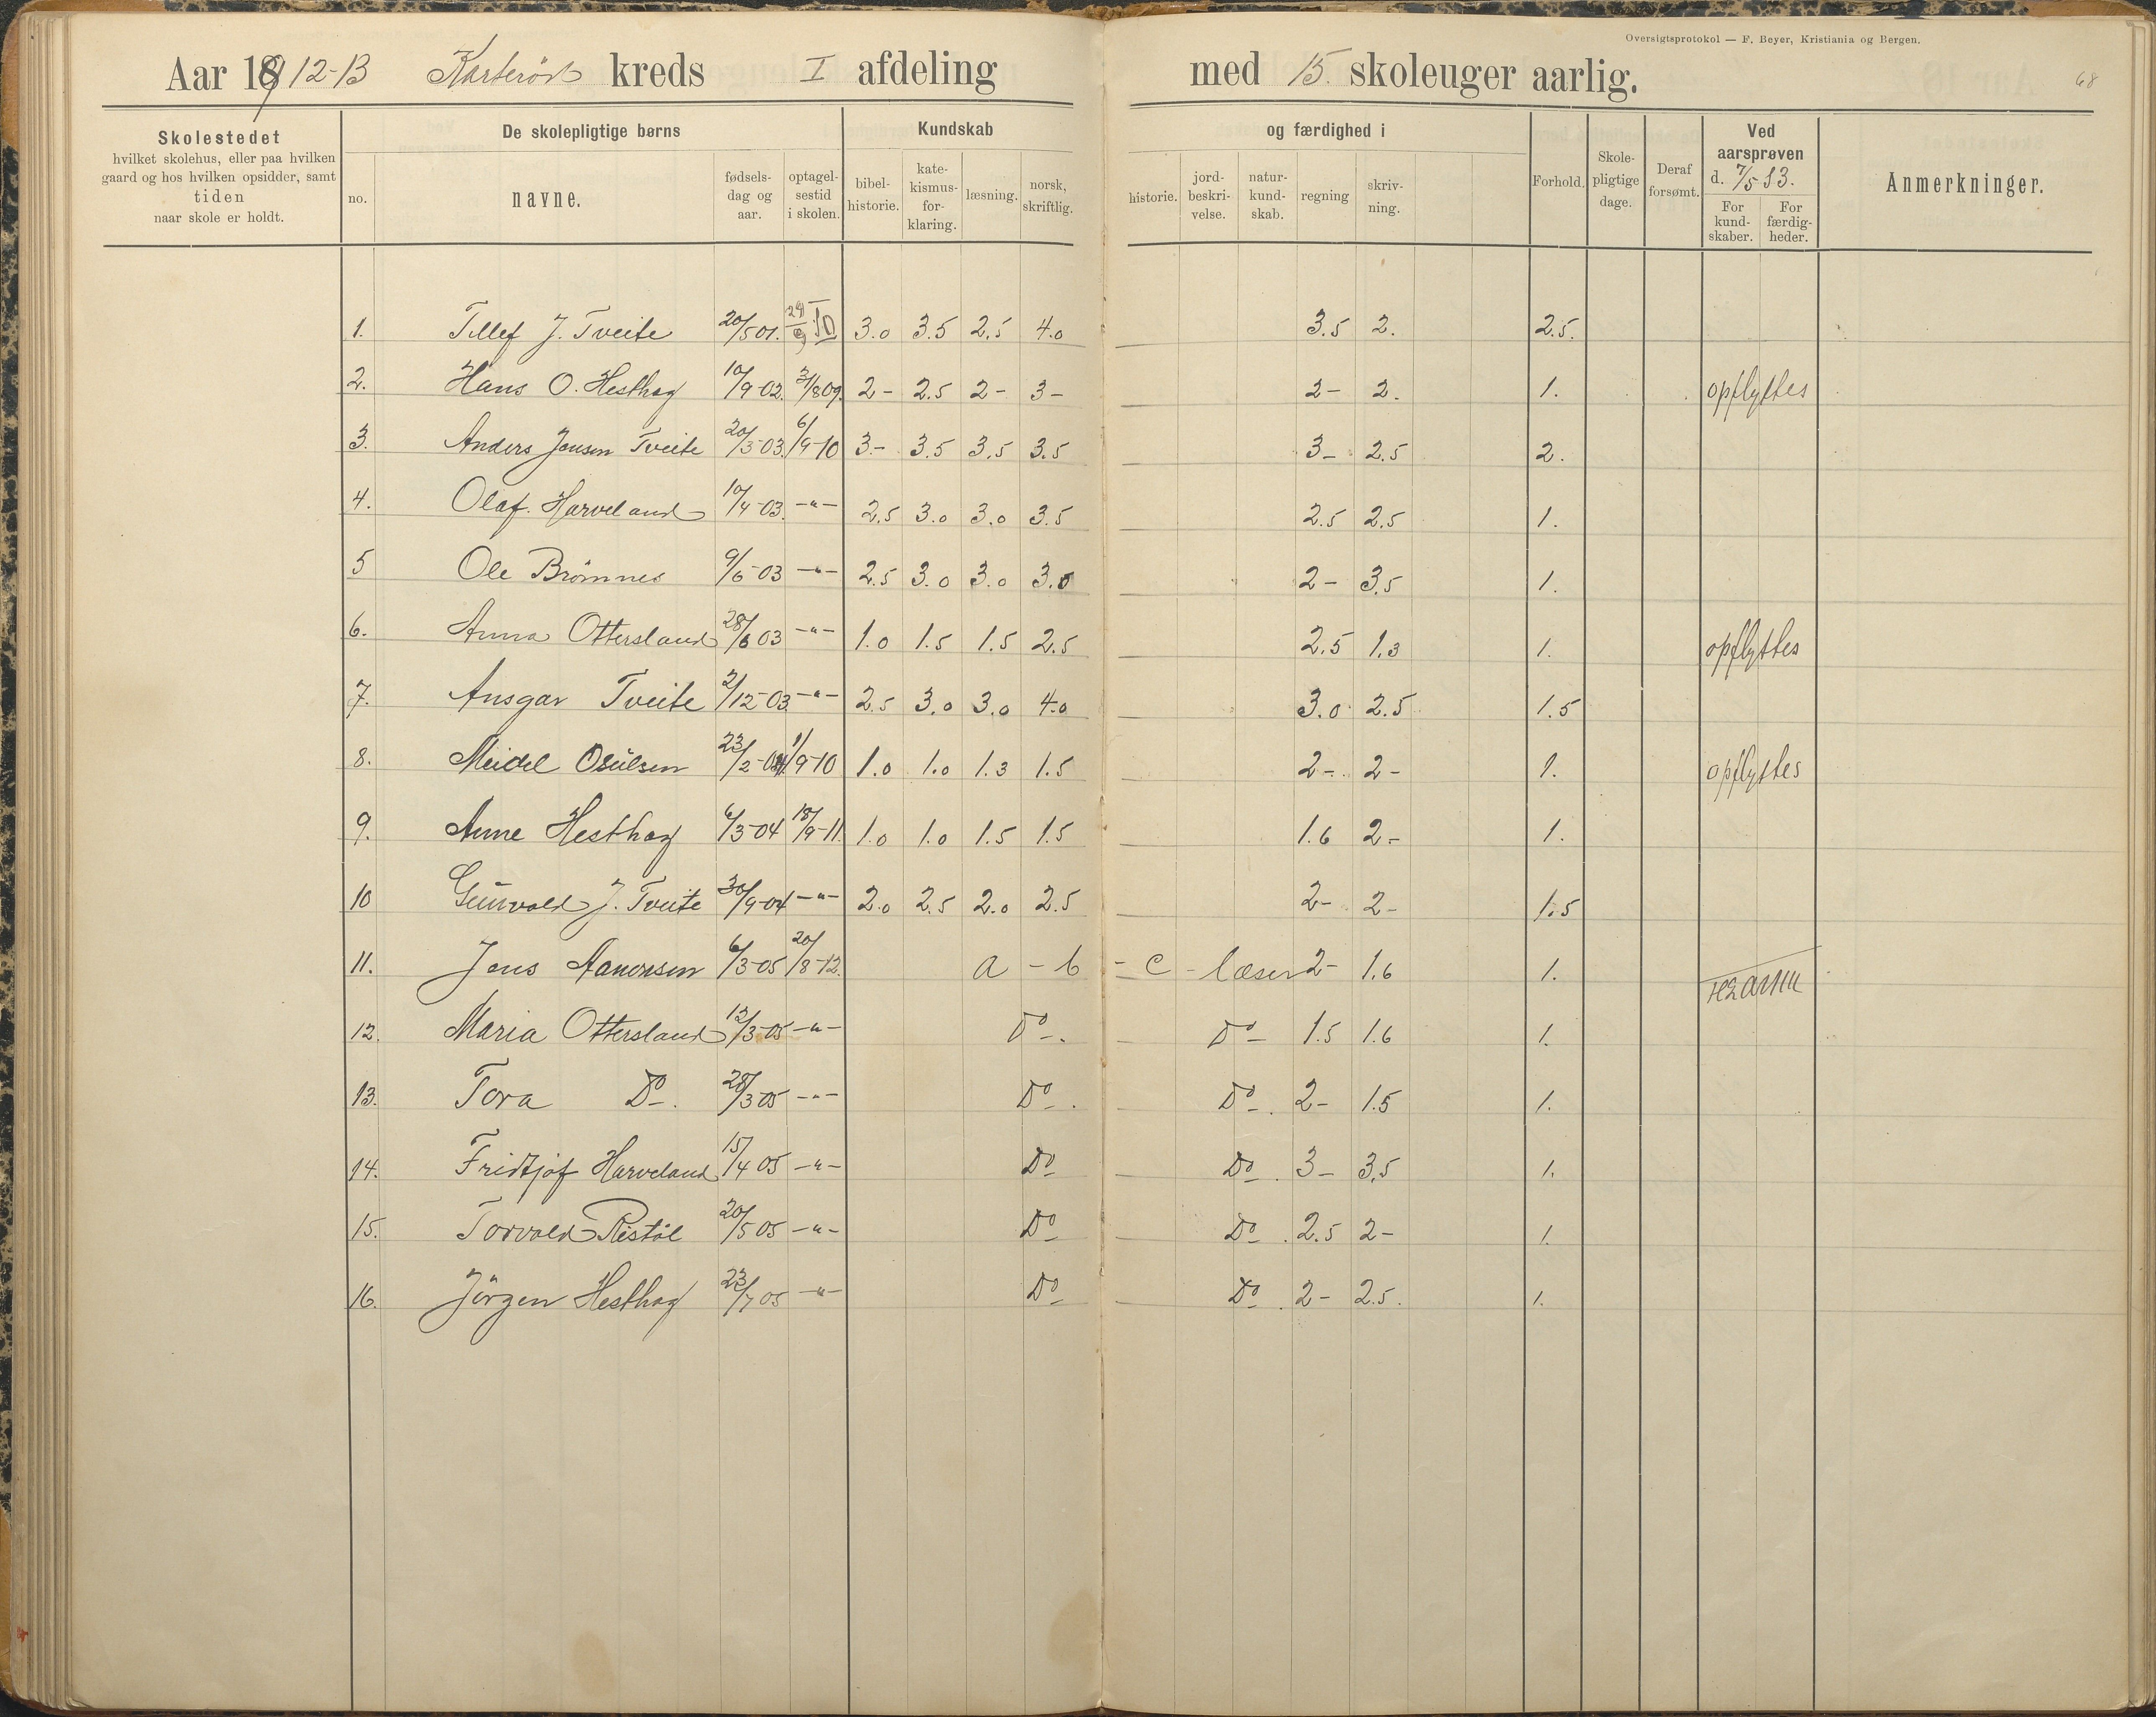 Oversigtsprotokol — F. Beyer, Kristiania og Bergen.
Aar 1912-13 Karteröd kreds I afdeling med 15. skoleuger aarlig. 68
Skolestedet
hvilket skolehus, eller paa hvilken
gaard og hos hvilken opsidder, samt
tiden
naar skole er holdt.
De skolepligtige børns
no.
navne.
fødsels-
dag og
aar.
optagel-
sestid
i skolen.
Kundskab
bibel-
historie.
kate-
kismus-
for-
klaring.
læsning.
norsk,
skriftlig.
og færdighed i
historie.
jord-
beskri-
velse.
natur-
kund-
skab.
regning
skriv-
ning.
Forhold.
Skole-
pligtige
dage.
Deraf
forsømt.
Ved
aarsprøven
d. 7/5 13.
For
kund-
skaber.
For
færdig-
heder.
Anmerkninger.
1. Tellef J. Tveite 20/5 01. 3.0 3.5 2.5 4.0 3.5 2. 2.5.
2. Hans O. Hesthag 10/9-02. 31/8 09. 2- 2.5 2- 3- 2- 2. 1. opflyttes
3. Anders Jensen Tveite 20/3-03. 6/9-10 3- 3.5 3.5 3.5 3- 2.5 2.
4. Olaf Harveland 10/4-03. -"- 2.5 3.0 3.0 3.5 2.5 2.5 1.
5 Ole Brömnes 9/6-03 -"- 2.5 3.0 3.0 3.0 2- 3.5 1.
6. Anna Ottersland 28/6 03 -"- 1.0 1.5 1.5 2.5 2.5 1.3 1. opflyttes
7. Ansgar Tveite 2/12-03 -"- 2.5 3.0 3.0 4.0 3.0 2.5 1.5
8. Meidel Osulsen 23/2-04 1/9-10 1.0 1.0 1.3 1.5 2- 2- 1. opflyttes
9. Anne Hesthag 6/3-04 18/9-11. 1.0 1.0 1.5 1.5 1.6 2- 1.
10 Gunvald J. Tveite 30/9-04 -"- 2.0 2.5 2.0 2.5 2- 2- 1.5
11. Jens Aanonsen 6/3-05 20/8-12. a - b - c - læser 2- 1.6 1.
12. Maria Ottersland 12/3-05 -"- Do. Do 1.5 1.6 1.
13. Tora Do. 28/3 05 -"- Do. Do. 2- 1.5 1.
14. Fridtjof Harveland 15/4 05 -"- Do Do. 3- 3.5 1.
15. Torvald Ristöl 20/5 05 -"- Do Do. 2.5 2- 1.
16. Jörgen Hesthag 23/7 05 -"- Do Do. 2- 2.5. 1.